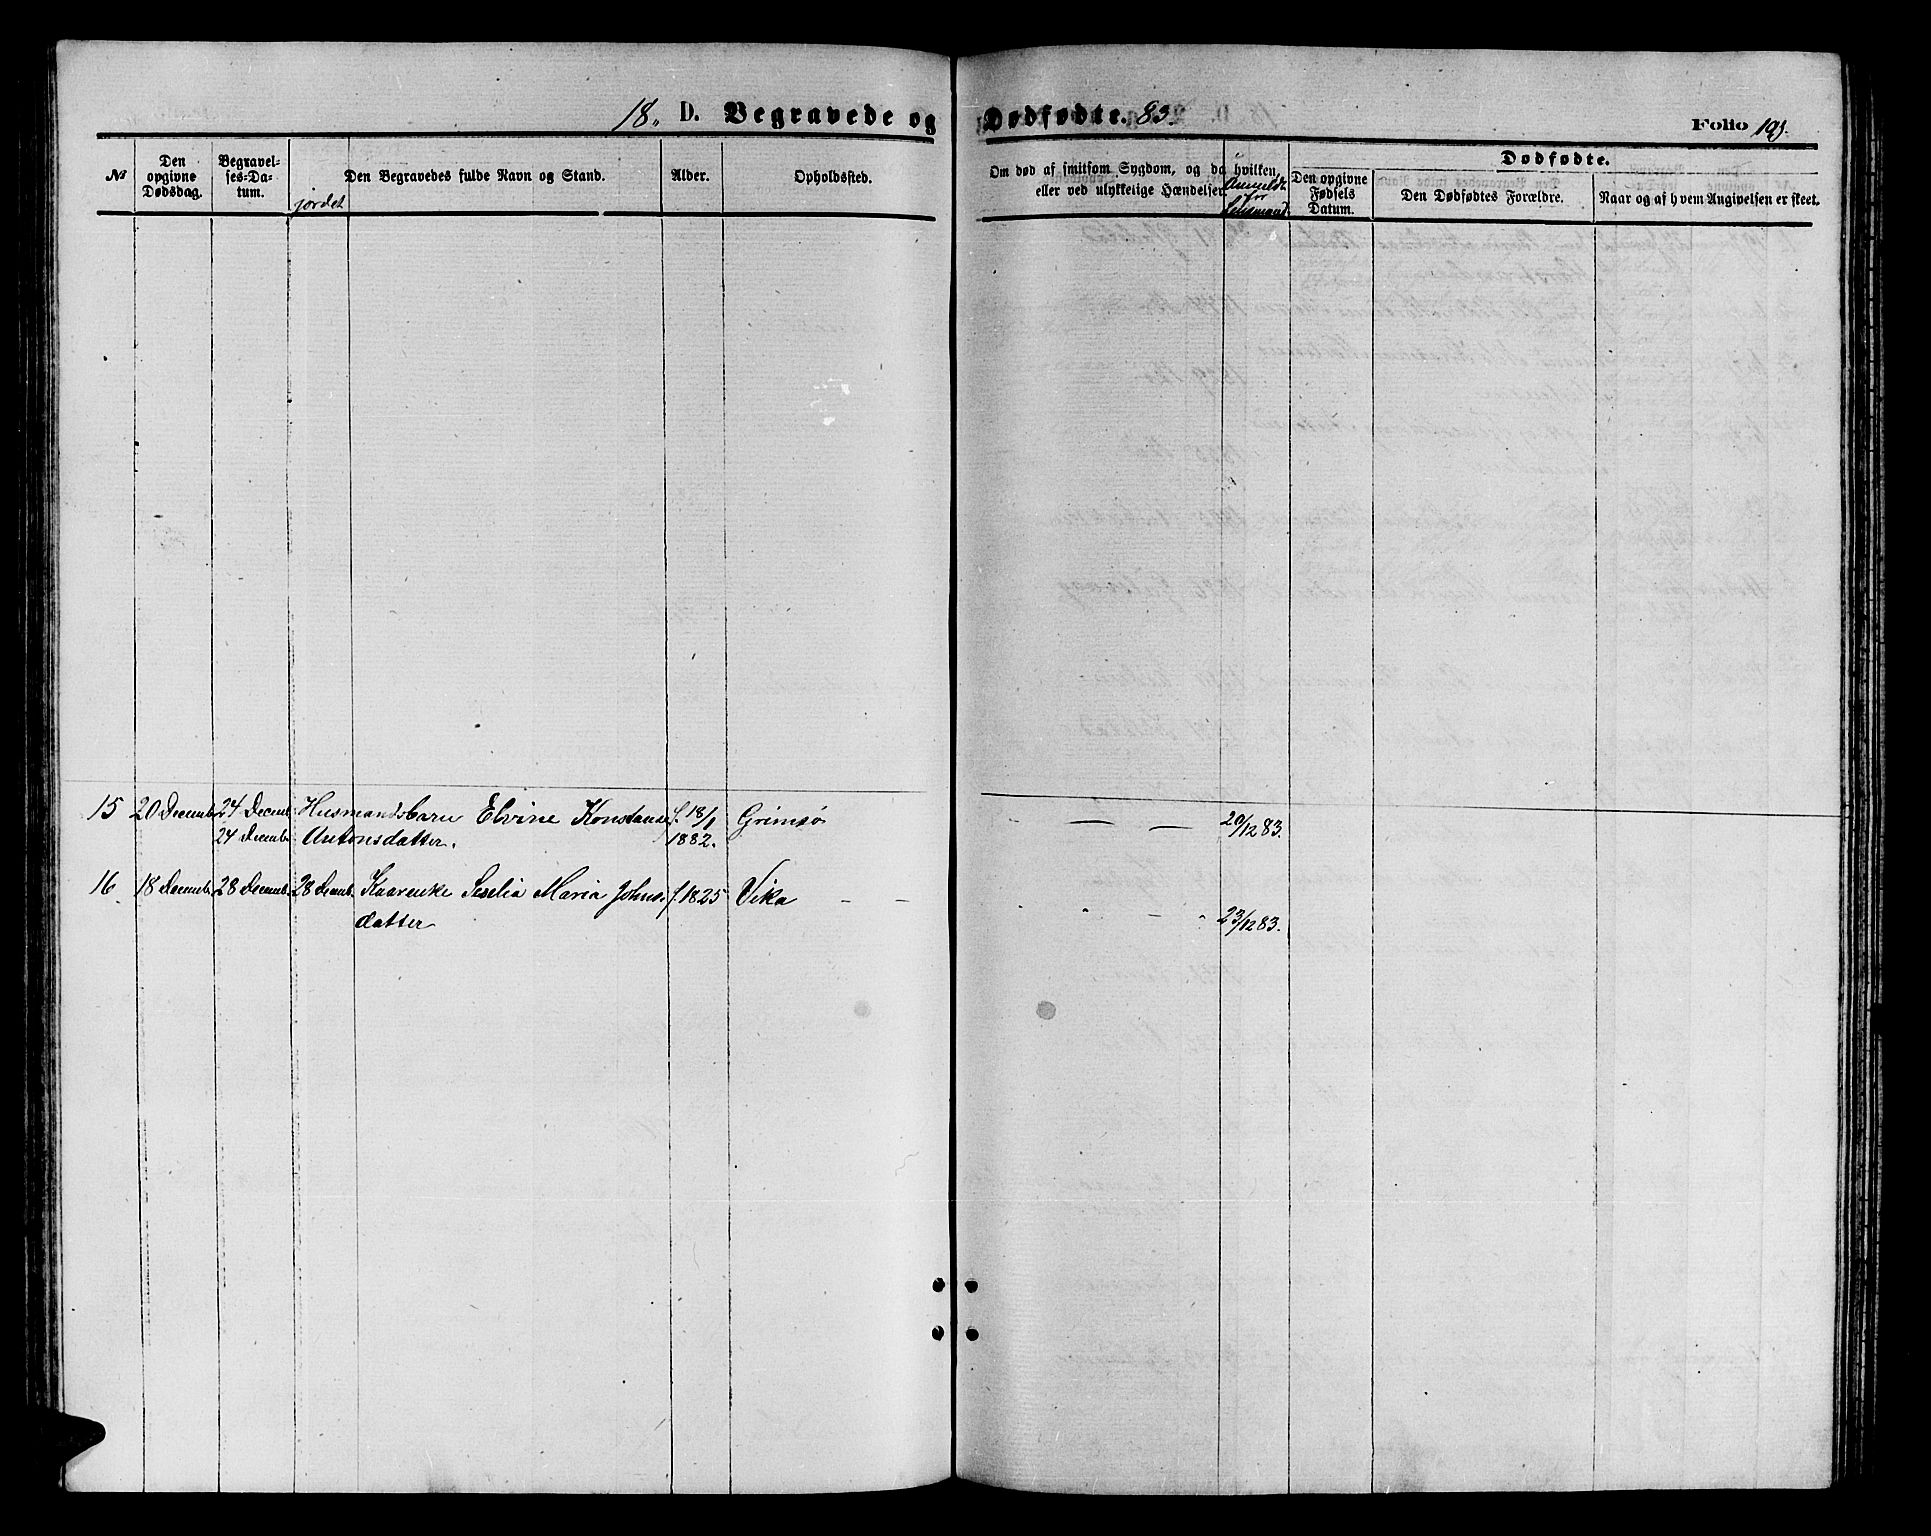 18 D. Begravede og Dødfødte. 83.
Folio 193.
№
Den opgivne Dødsdag.
Begravel-ses-Da-tum.
jordet
Den Begravedes fulde Navn og Stand.
Alder.
Opholdssted.
Om død af smitsom Sygdom, og da hvilken,
eller ved ulykkelige Hændelser
Anmeldt for Lensmand.
Dødfødte.
Den opgivne Fødsels Datum.
Den Dødfødtes Forældre.
Naar og af hvem Angivelsen er skeet.
15 20 Decemb. 24 Decemb. Husmandsbarn Elvine Konstanse f. 18/1 Grimsø — — — 20/12 83.
24 Decemb. Antonsdatter. 1882.
16. 18 Decemb. 28 Decemb. 28 Decemb. Kaarenke Seselia Maria Johns- f. 1825 Vika - -
datter " " — " 23/12 83.